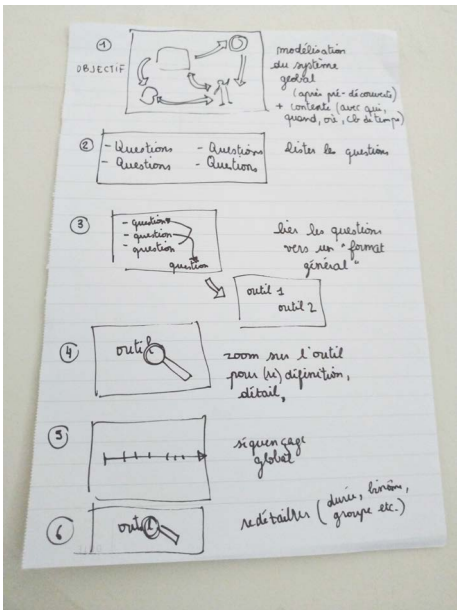 ①
OBJECTIF
modélisation
du système
global
(après pré-découverte)
+ contexte (avec qui,
quand, où, cb de temps)
②
- Questions - Questions
- Questions - Questions
lister les questions
③
- question
- question
- question
question
lier les questions
vers un "format
général"
outil 1
outil 2
④
outil
zoom sur l'outil
pour (re) définition,
détail,
⑤
séquençage
global
⑥
outil
redétailler (durée, binôme,
groupe etc.)